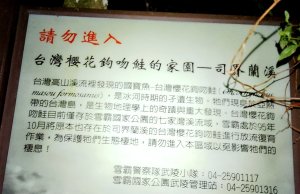 請勿進入
台灣櫻花鉤吻鮭的家園－司界蘭溪
台灣高山溪流裡發現的國寶魚-台灣櫻花鉤吻鮭(
masou formosanus)，是冰河時期的孑遺生物，牠們現身於亞熱
帶的台灣島，是生物地理學上的奇蹟與重大發現，台灣櫻花鉤
吻鮭目前僅存於雪霸國家公園的七家灣溪流域，雪霸處於95年
10月將原本也存在於司界蘭溪的台灣櫻花鉤吻鮭進行放流復育
作業，為保護牠們生態棲地，請勿進入本區域以免影響牠們的
棲息！
雪霸警察隊武陵小隊：04-25901117
雪霸國家公園武陵管理站：04-25901316